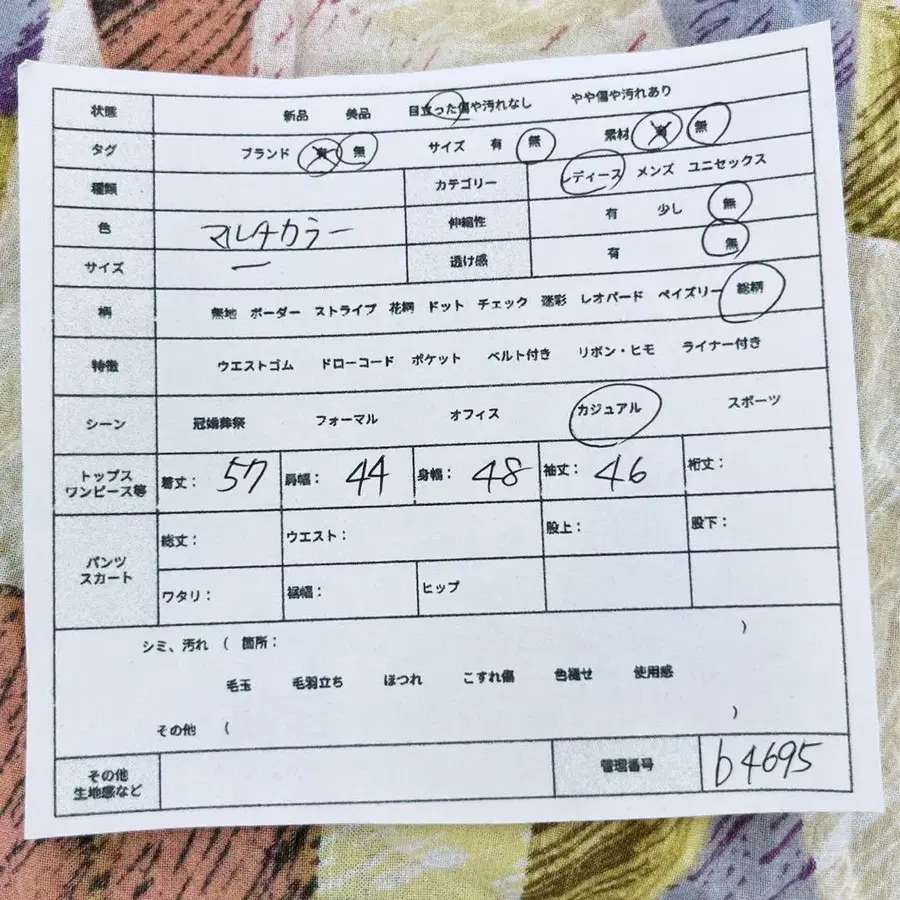 状態 新品 美品 目立った傷や汚れなし やや傷や汚れあり
タグ ブランド 有 無 サイズ 有 無 素材 有 無
種類 カテゴリー レディース メンズ ユニセックス
色 マルチカラー 伸縮性 有 少し 無
サイズ ー 透け感 有 無
柄 無地 ボーダー ストライプ 花柄 ドット チェック 迷彩 レオパード ペイズリー 総柄
特徴 ウエストゴム ドローコード ポケット ベルト付き リボン・ヒモ ライナー付き
シーン 冠婚葬祭 フォーマル オフィス カジュアル スポーツ
トップス
ワンピース等 着丈: 57 肩幅: 44 身幅: 48 袖丈: 46 裄丈:
パンツ
スカート
総丈: ウエスト: 股上: 股下:
ワタリ: 裾幅: ヒップ
シミ、汚れ ( 箇所: )
毛玉 毛羽立ち ほつれ こすれ傷 色褪せ 使用感
その他 ( )
その他
生地感など 管理番号 b4695